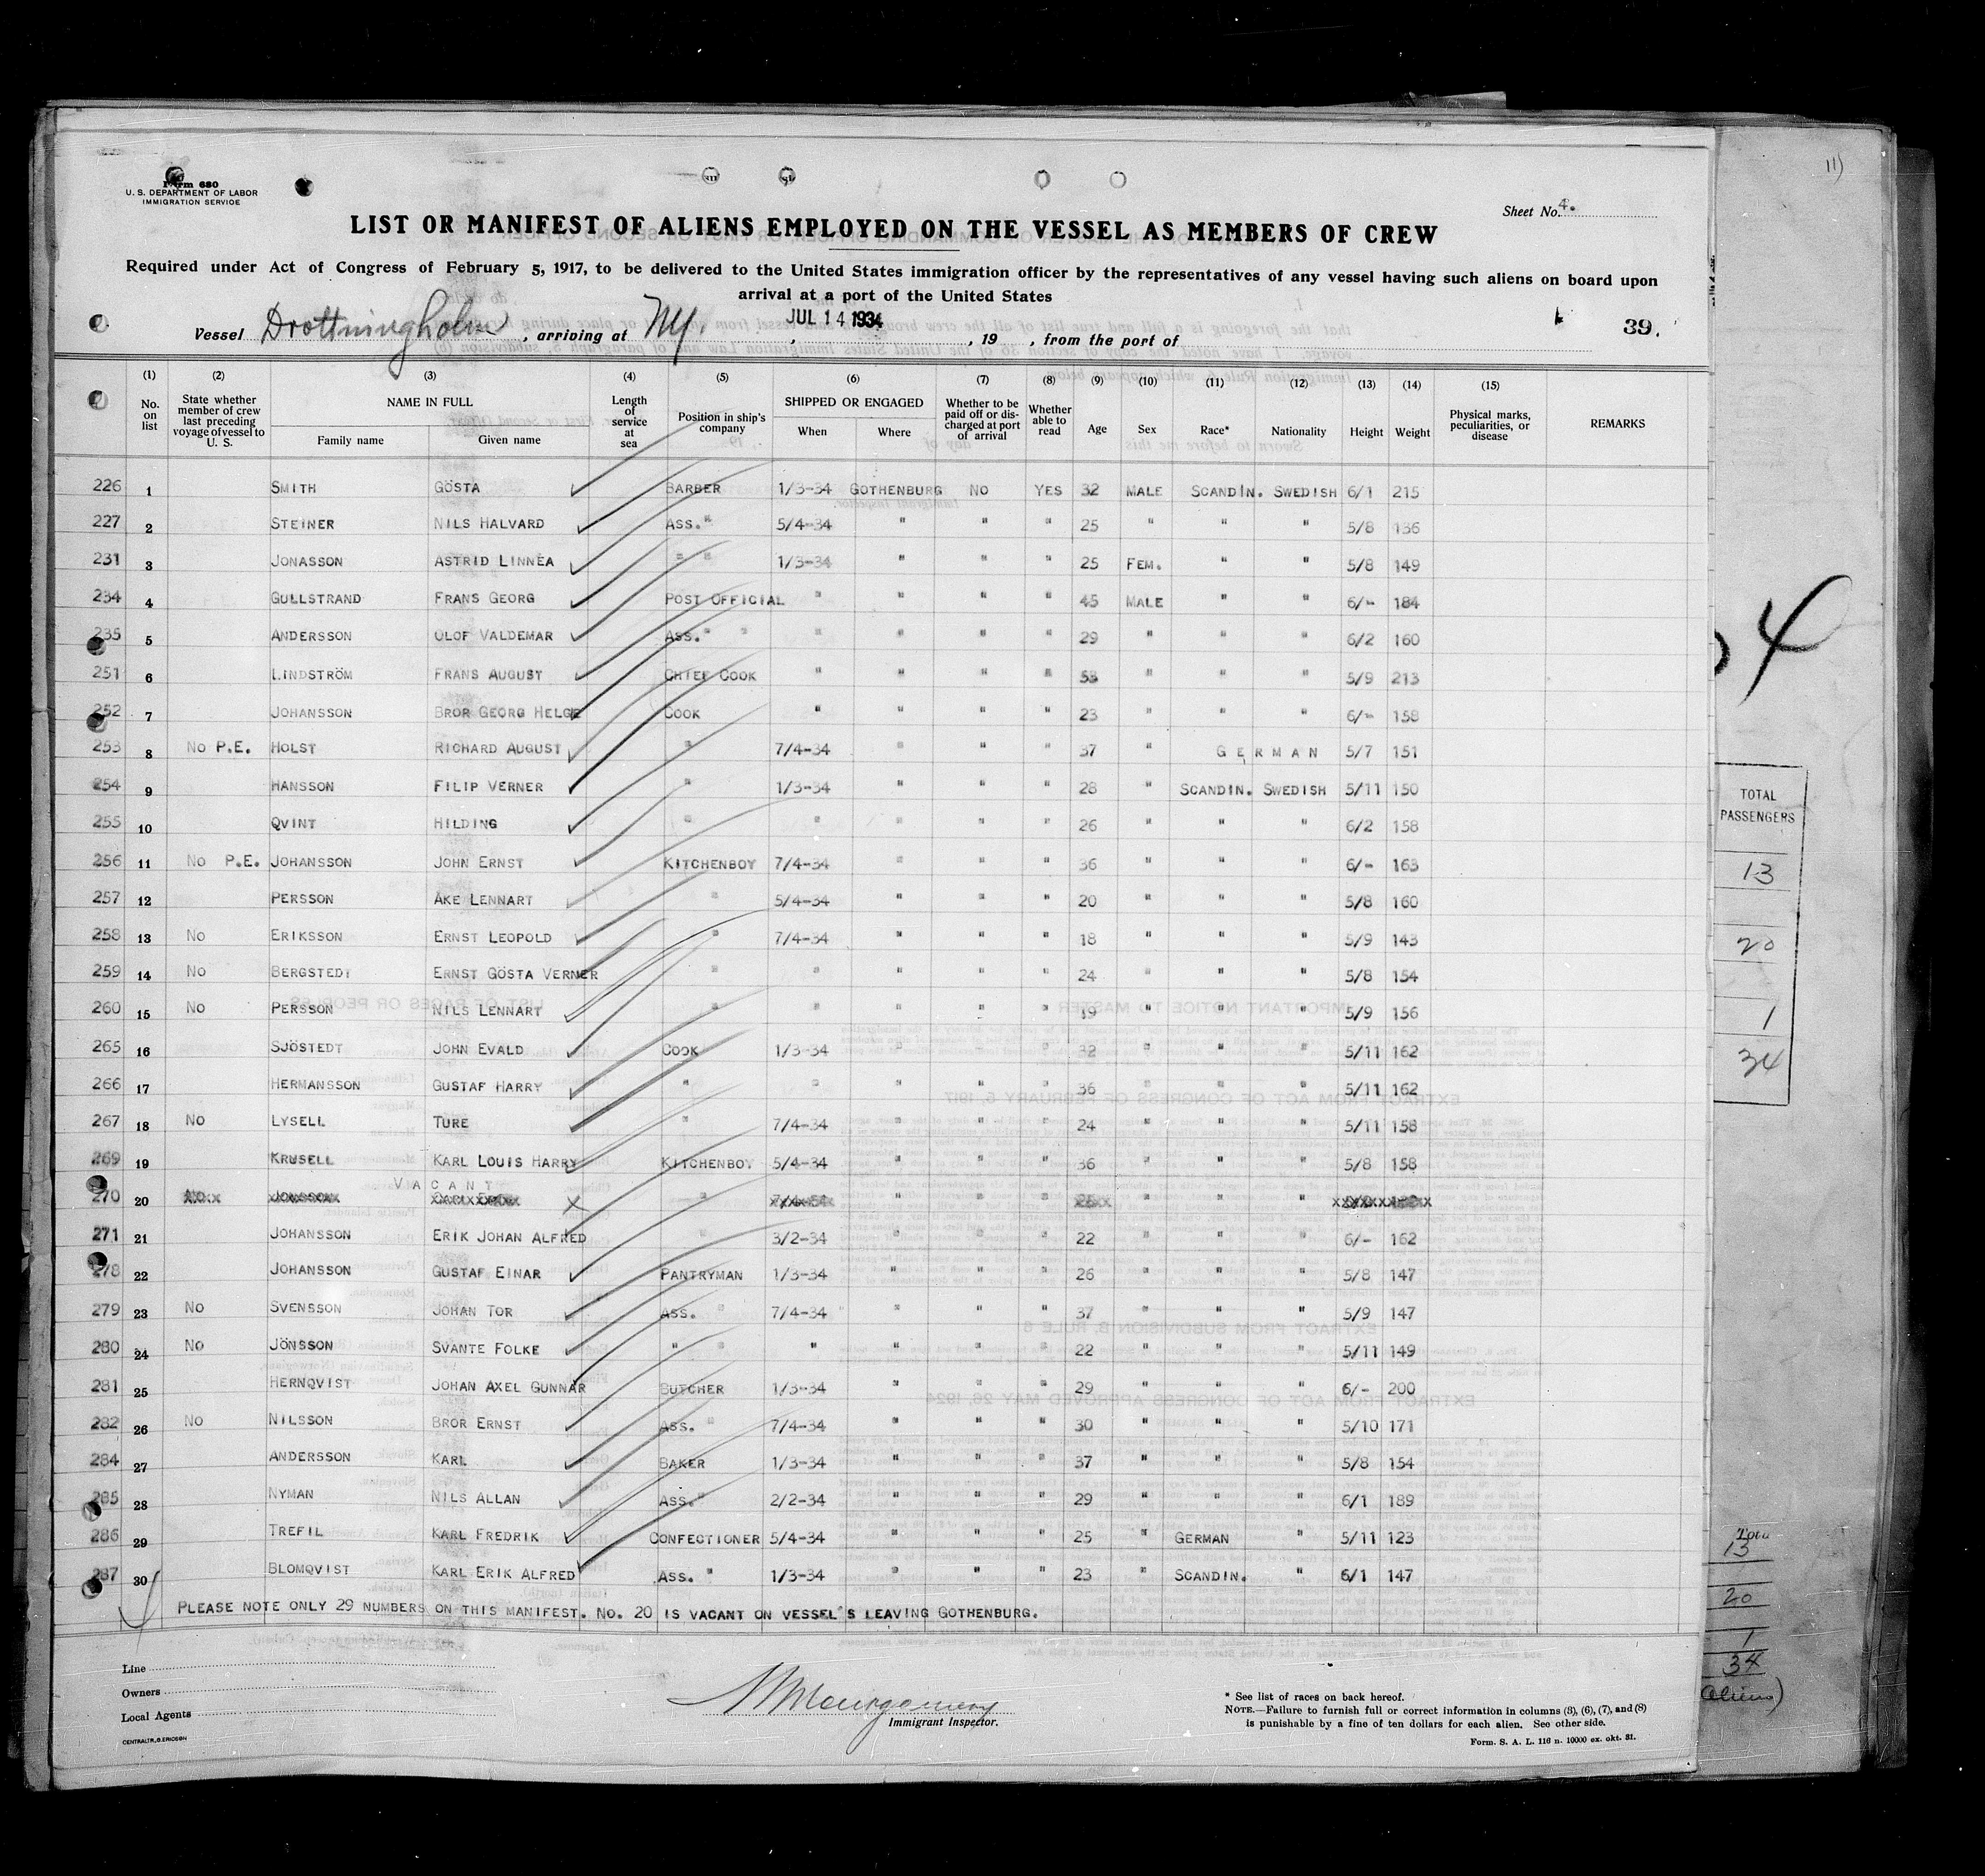 Form 680
U. S. DEPARTMENT OF LABOR
IMMIGRATION SERVICE
Sheet No. 4.
LIST OR MANIFEST OF ALIENS EMPLOYED ON THE VESSEL AS MEMBERS OF CREW
Required under Act of Congress of February 5, 1917, to be delivered to the United States immigration officer by the representatives of any vessel having such aliens on board upon
arrival at a port of the United States
Vessel Drottningholm, arriving at NY. JUL 14 1934, 19 , from the port of 39.
(1) No. on list (2) State whether member of crew last preceding voyage of vessel to U. S. (3) NAME IN FULL Family name Given name (4) Length of service at sea (5) Position in ship's company (6) SHIPPED OR ENGAGED When Where (7) Whether to be paid off or discharged at port of arrival (8) Whether able to read (9) Age (10) Sex (11) Race* (12) Nationality (13) Height (14) Weight (15) Physical marks, peculiarities, or disease REMARKS
226 1 SMITH GÖSTA BARBER 1/3-34 GOTHENBURG NO YES 32 MALE SCANDIN. SWEDISH 6/1 215
227 2 STEINER NILS HALVARD ASS. " 5/4-34 " " " 25 " " " 5/8 136
231 3 JONASSON ASTRID LINNÉA " " 1/3-34 " " " 25 FEM. " " 5/8 149
234 4 GULLSTRAND FRANS GEORG POST OFFICIAL " " " " 45 MALE " " 6/- 184
235 5 ANDERSSON OLOF VALDEMAR ASS. " " " " " " 29 " " " 6/2 160
251 6 LINDSTRÖM FRANS AUGUST CHIEF COOK " " " " 53 " " " 5/9 213
252 7 JOHANSSON BROR GEORG HELGE COOK " " " " 23 " " " 6/- 158
253 8 NO P.E. HOLST RICHARD AUGUST " 7/4-34 " " " 37 " GERMAN 5/7 151
254 9 HANSSON FILIP VERNER " 1/3-34 " " " 28 " SCANDIN. SWEDISH 5/11 150
255 10 QVINT HILDING " " " " " 26 " " " 6/2 158
256 11 NO P.E. JOHANSSON JOHN ERNST KITCHENBOY 7/4-34 " " " 36 " " " 6/- 163
257 12 PERSSON ÅKE LENNART " 5/4-34 " " " 20 " " " 5/8 160
258 13 NO ERIKSSON ERNST LEOPOLD " 7/4-34 " " " 18 " " " 5/9 143
259 14 NO BERGSTEDT ERNST GÖSTA VERNER " " " " " 24 " " " 5/8 154
260 15 NO PERSSON NILS LENNART " " " " " 19 " " " 5/9 156
265 16 SJÖSTEDT JOHN EVALD COOK 1/3-34 " " " 32 " " " 5/11 162
266 17 HERMANSSON GUSTAF HARRY " " " " " 36 " " " 5/11 162
267 18 NO LYSELL TURE " 7/4-34 " " " 24 " " " 5/11 158
269 19 KRUSELL KARL LOUIS HARRY KITCHENBOY 5/4-34 " " " 36 " " " 5/8 158
VACANT
270 20 X " " " " " " "
271 21 JOHANSSON ERIK JOHAN ALFRED " 3/2-34 " " " 22 " " " 6/- 162
278 22 JOHANSSON GUSTAF EINAR PANTRYMAN 1/3-34 " " " 26 " " " 5/8 147
279 23 NO SVENSSON JOHAN TOR ASS. " 7/4-34 " " " 37 " " " 5/9 147
280 24 NO JÖNSSON SVANTE FOLKE " " " " " " 22 " " " 5/11 149
281 25 HERNQVIST JOHAN AXEL GUNNAR BUTCHER 1/3-34 " " " 29 " " " 6/- 200
282 26 NO NILSSON BROR ERNST ASS. " 7/4-34 " " " 30 " " " 5/10 171
284 27 ANDERSSON KARL BAKER 1/3-34 " " " 37 " " " 5/8 154
285 28 NYMAN NILS ALLAN ASS. " 2/2-34 " " " 29 " " " 6/1 189
286 29 TREFIL KARL FREDRIK CONFECTIONER 5/4-34 " " " 25 " GERMAN " 5/11 123
287 30 BLOMQVIST KARL ERIK ALFRED ASS. " 1/3-34 " " " 23 " SCANDIN. " 6/1 147
PLEASE NOTE ONLY 29 NUMBERS ON THIS MANIFEST. NO. 20 IS VACANT ON VESSEL'S LEAVING GOTHENBURG.
Line
Owners
Local Agents
CENTRALTR., G. ERICSON
Montgomery
Immigrant Inspector.
* See list of races on back hereof.
NOTE.—Failure to furnish full or correct information in columns (3), (6), (7), and (8)
is punishable by a fine of ten dollars for each alien. See other side.
Form. S. A. L. 116 n. 10000 ex. okt. 31.
11)
4
TOTAL
PASSENGERS
13
20
1
34
Total
13
20
1
34
(Aliens)